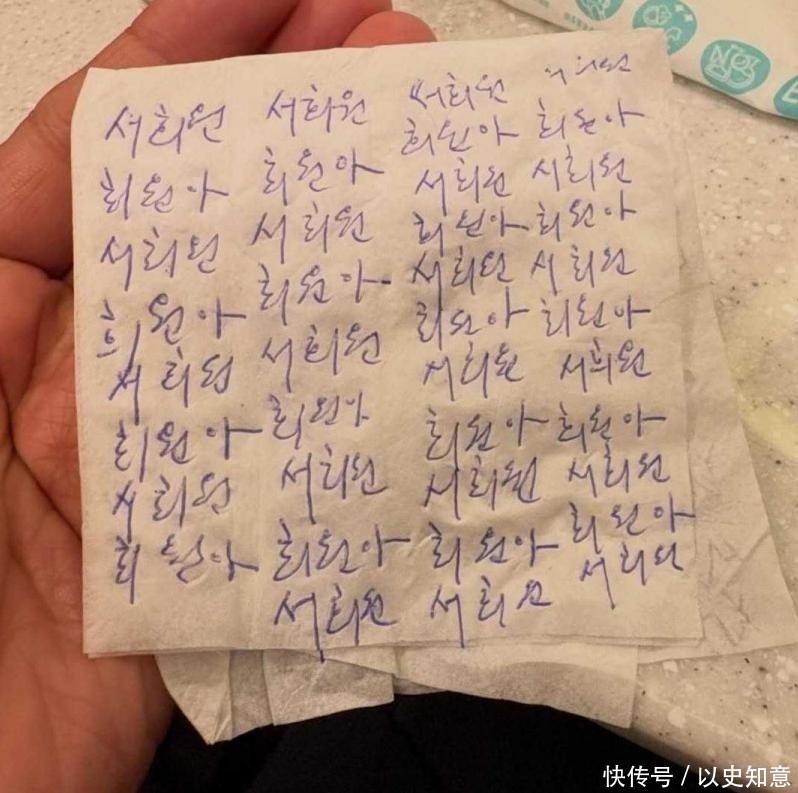 서희원
희원아
서희원
희원아
서희원
희원아
서희원
희원아
서희원
희원아
서희원
희원아
서희원
희원아
서희원
희원아
서희원
서희원
희원아
서희원
희원아
서희원
희원아
서희원
희원아
서희원
희원아
서희원
희원아
서희원
희원아
서희원
희원아
서희원
희원아
서희원
희원아
서희원
快传号 / 以史知意